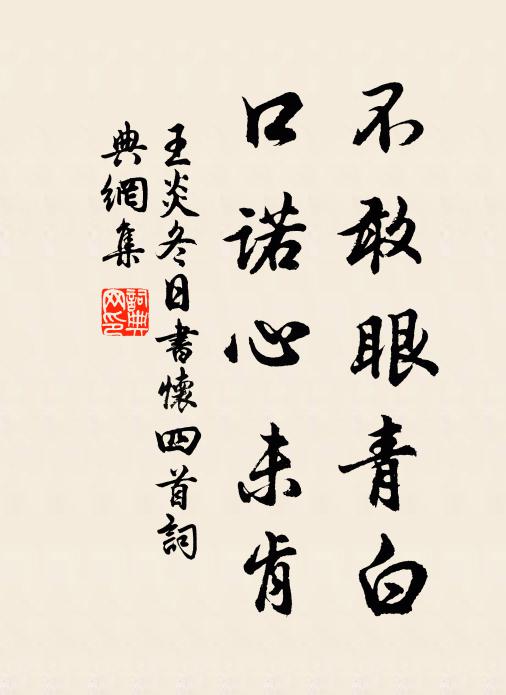 不敢眼青白
口諾心未肯
王炎冬日書懷四首詞
典網集
詞典
网印